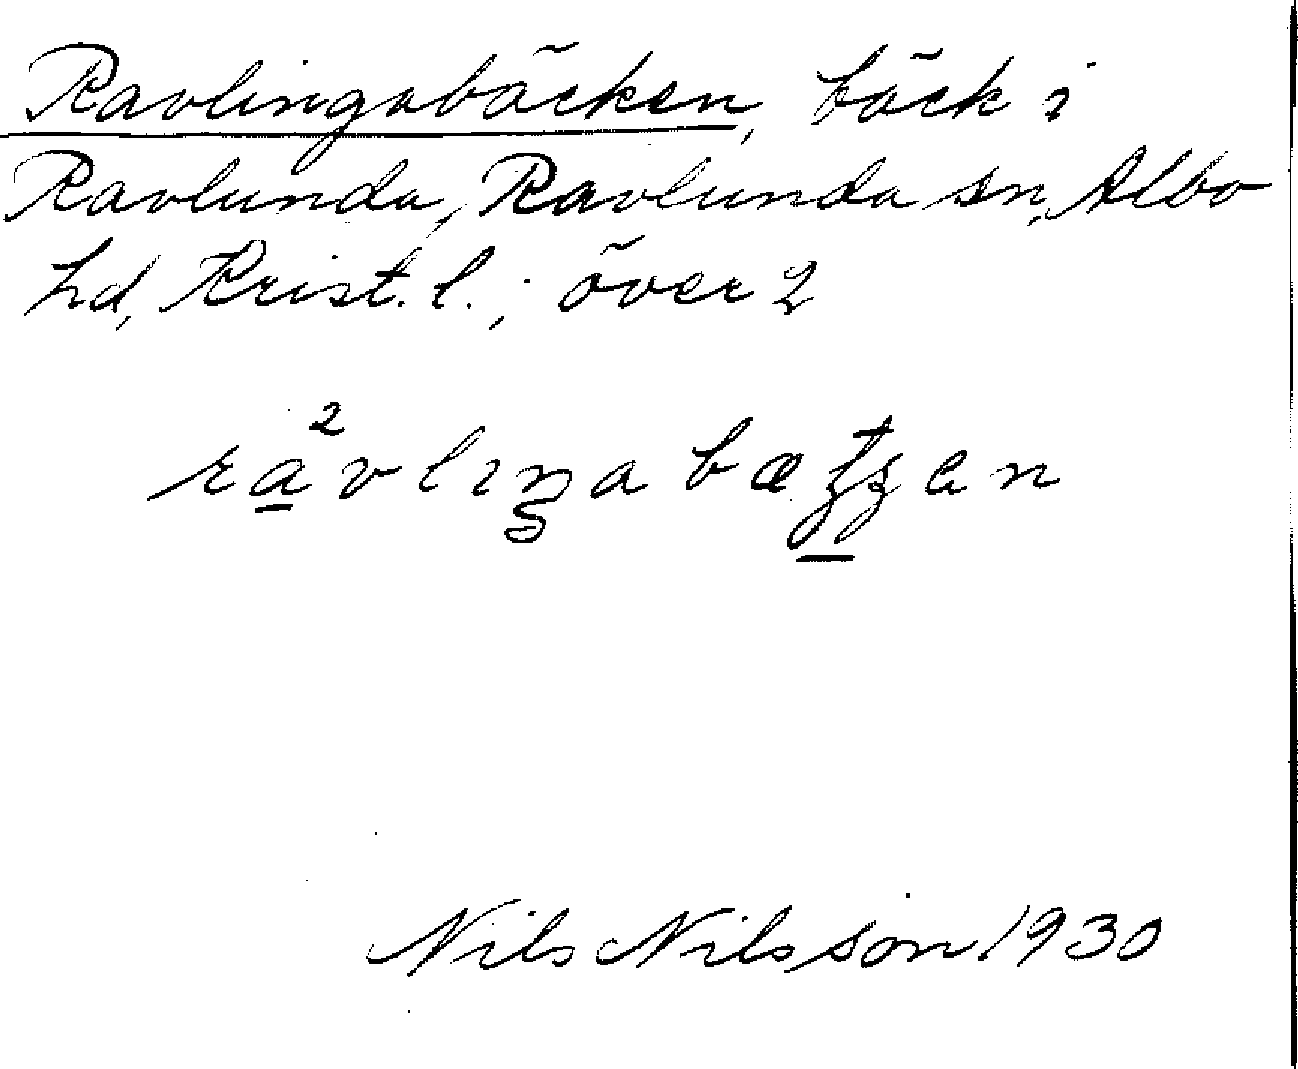 Ravlingabäcken, bäck i
Ravlunda, Ravlunda sn, Albo
hd, Krist. l.; över 2
Nils Nilsson 1930